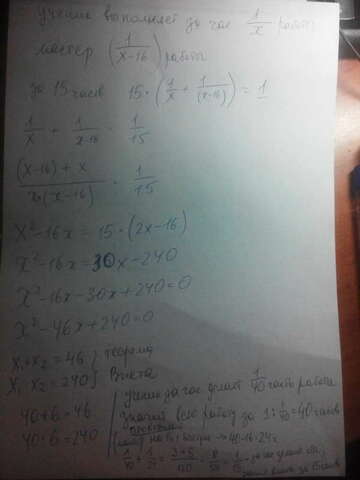 ученик выполняет за час 1/x работы
мастер (1/(x-16)) работы
за 15 часов 15·(1/x + 1/(x-16)) = 1
1/x + 1/(x-16) = 1/15
((x-16)+x)/(x(x-16)) = 1/15
x²-16x = 15·(2x-16)
x²-16x = 30x-240
x²-16x-30x+240=0
x²-46x+240=0
x₁+x₂=46 } теорема
x₁·x₂=240 } Виета
40+6=46
40·6=240
Ученик за час делает 1/40 часть работы
Значит всю работу за 1:1/40=40 часов
проверка
40-16=24
1/40 + 1/24 = (3+5)/120 = 8/120 = 1/15